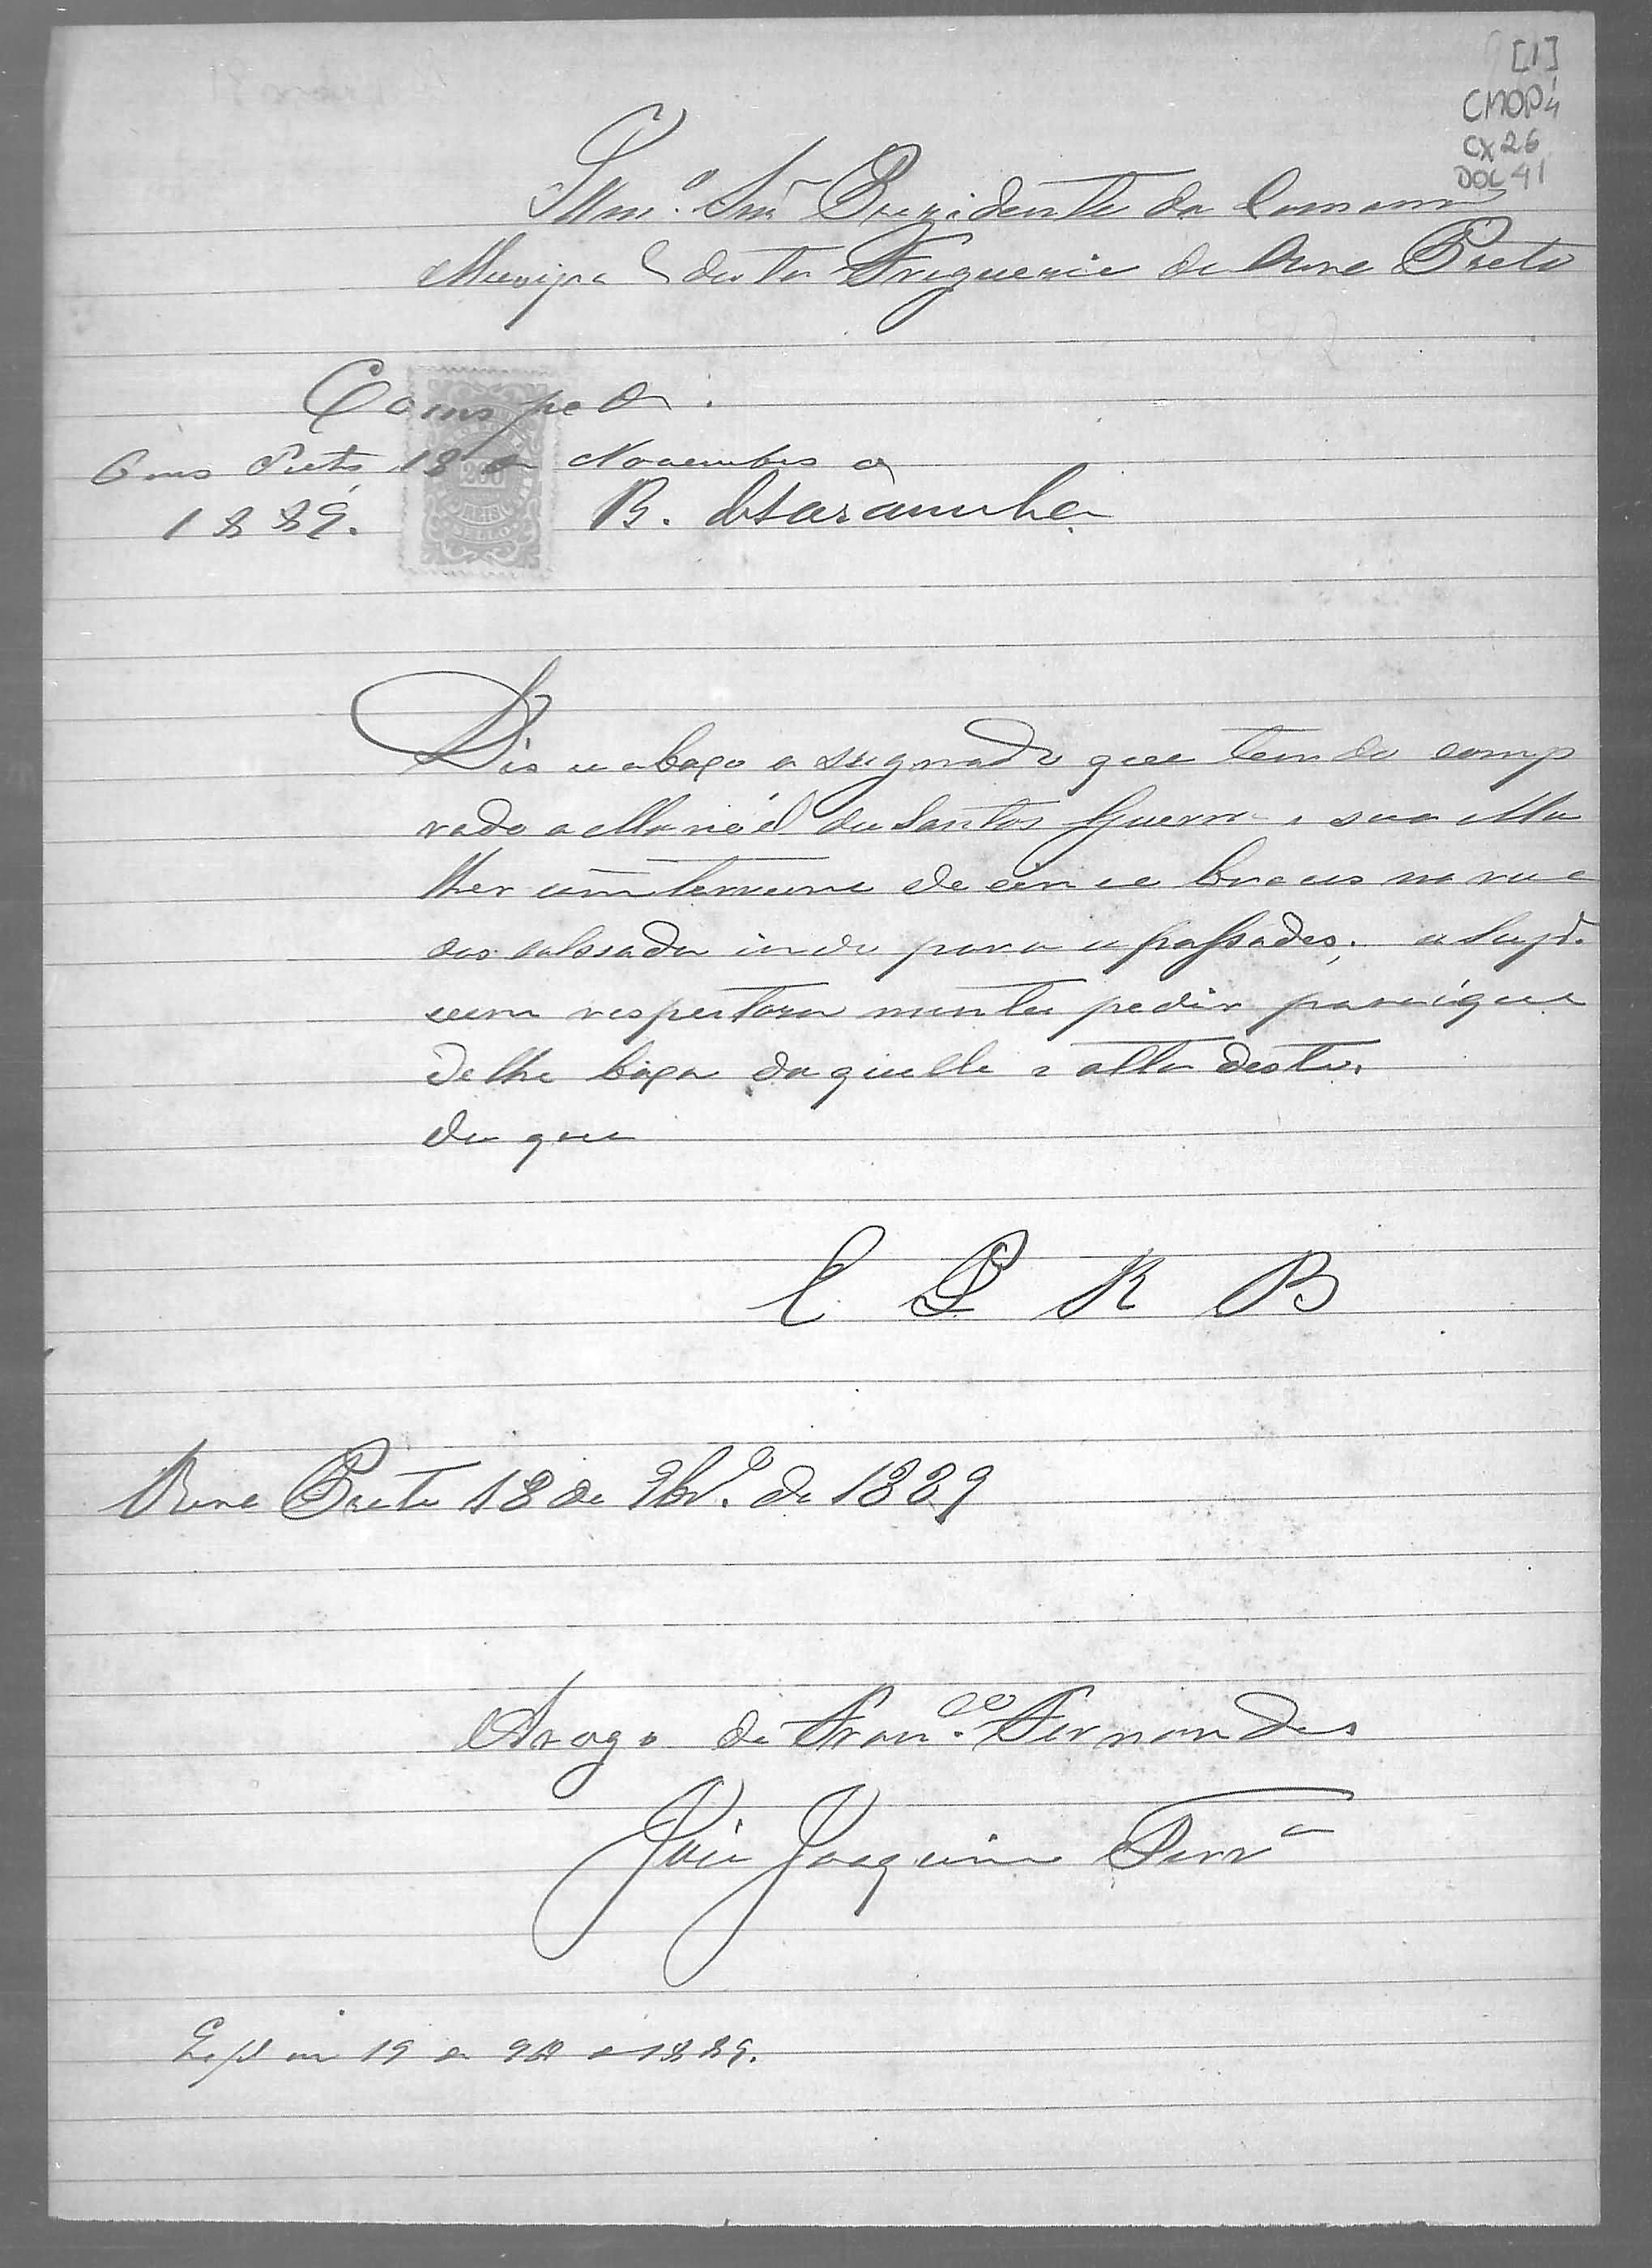 [1]
CMOP
CX 26
DOC 41
Illmº. Snr Prezidente da Camara
Munipal desta Freguezia de Ouro Preto
Como pede.
Ouro Preto, 18 de Novembro de
1889.
B. Saramenha
200
REIS
SELLO
Dis o abaxo a signado que tendo comp
rado a Manoel dos Santos Guerra e sua Mu
lher um terreno de cinco bracas na rua
das calssada indo para o passades; o Supe.
vem respeitoza mente pedir para que
de lhe baxa daquelle e alta deste.
de que
E P R B
Ouro Preto 18 de 9brº. de 1889
Arogo de Franco. Fernandes
José Joaquim Ferra
em 19 de 9b de 1889.